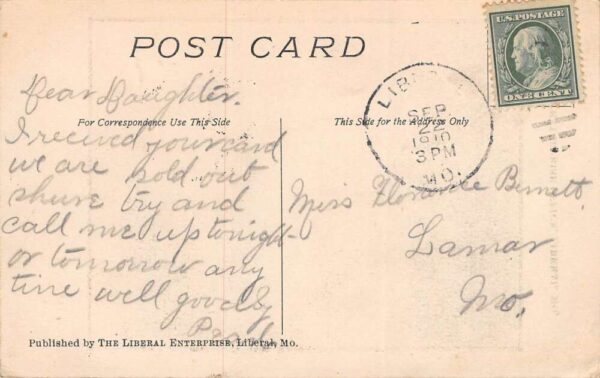 POST CARD
U.S.POSTAGE
ONE CENT
LIBE
SEP
22
1910
3 PM
MO.
For Correspondence Use This Side
This Side for the Address Only
Dear Daughter.
I recived your card
we are sold out
shure try and
call me up tonight
or tomorrow any
time well goodby
Miss Florence Bennett.
Lamar
Mo.
Published by THE LIBERAL ENTERPRISE, Liberal, Mo.